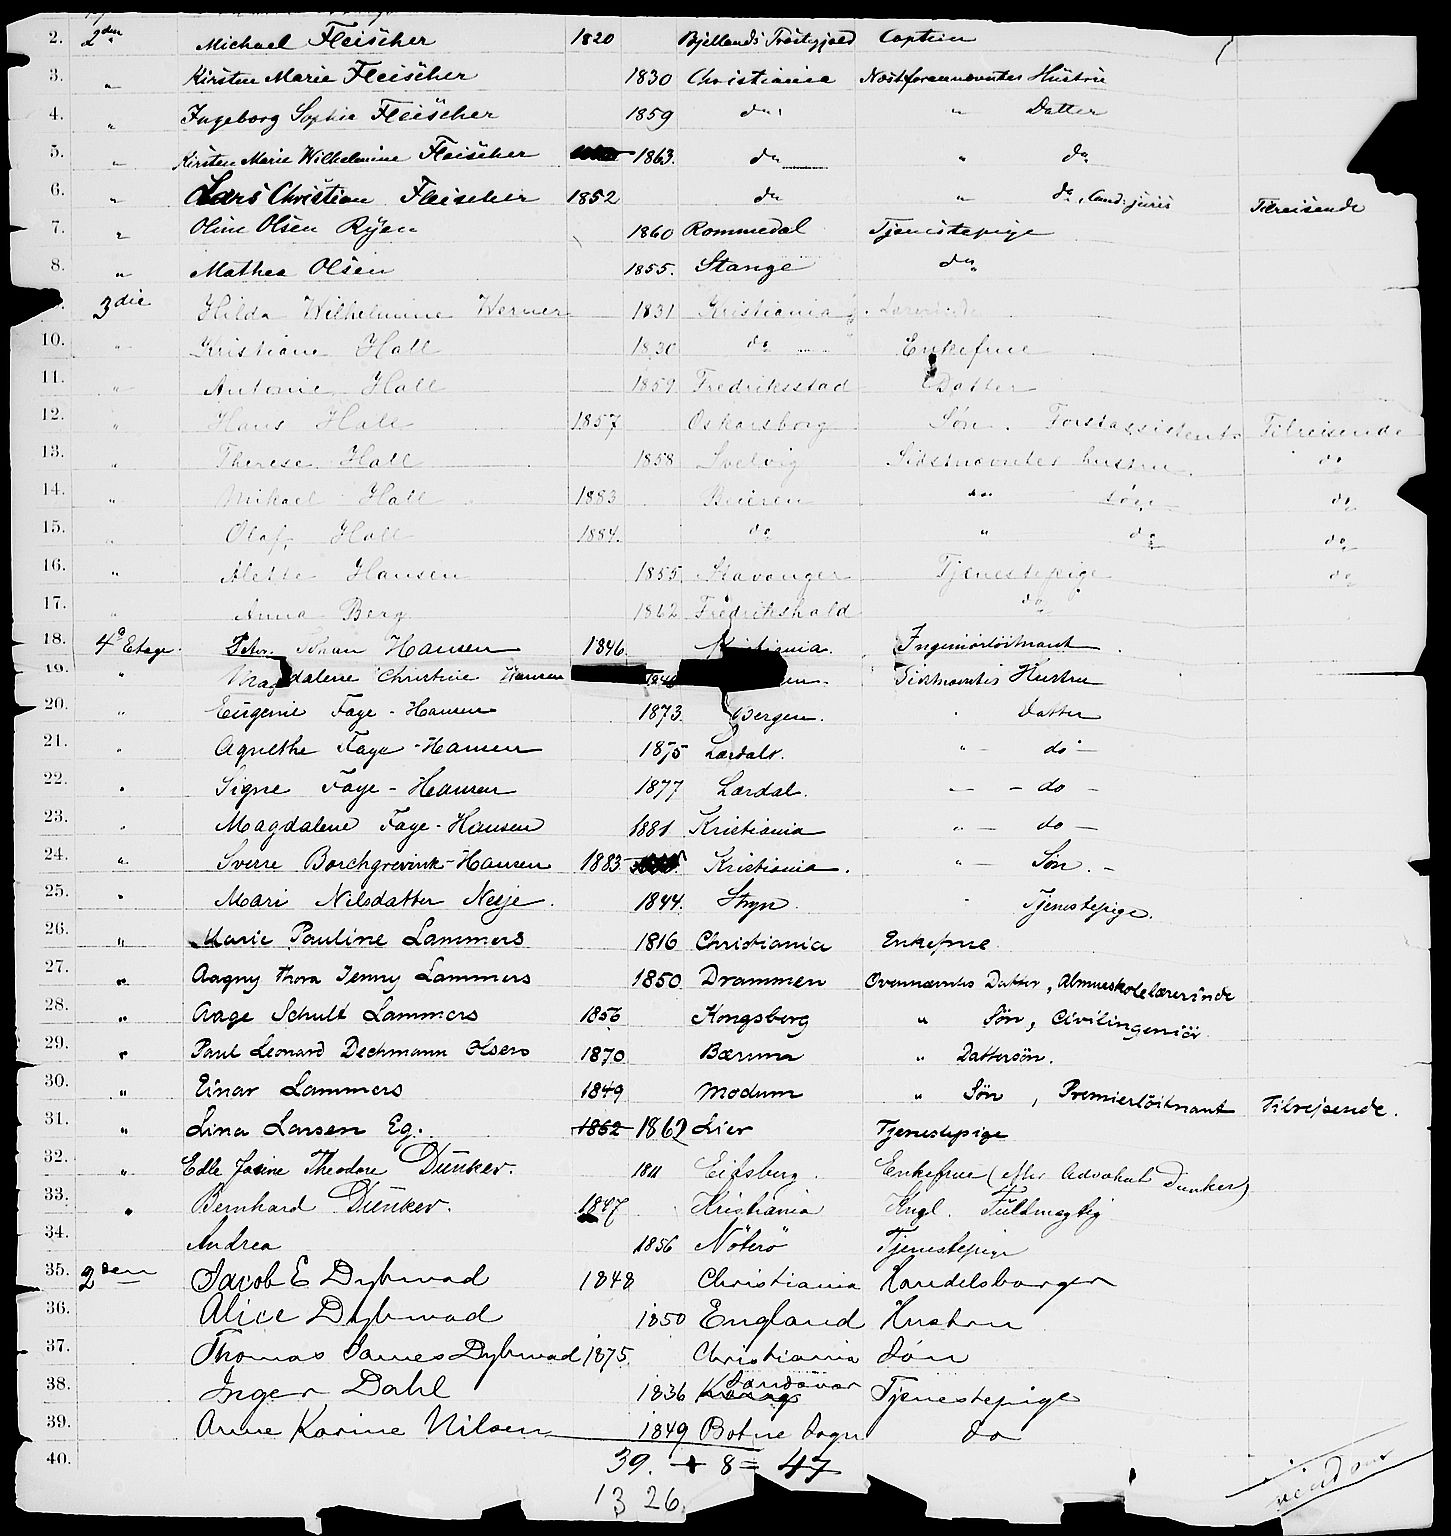 2. 2den Michael Fleischer 1820 Bjellands Præstegjeld Captein
3. " Kirsten Marie Fleischer 1830 Christiania Næstforannævntes Hustru
4. " Ingeborg Sophie Fleischer 1859 do " Datter
5. " Kirsten Marie Wilhelmine Fleischer 1863. do " do
6. " Lars Christian Fleischer 1852 do " do, Cand: juris Tilreisende
7. " Oline Olsen Ryen 1860 Rommedal Tjenestepige
8. " Mathea Olsen 1855. Stange do
3die Hilda Wilhelmine Werner 1831 Kristiania Lærerinde
10. " Kristiane Hall 1830 do Enkefrue
11. " Antonie Hall 1859 Fredriksstad Datter
12. " Hans Hall 1857 Oskarsborg Søn. Forstassistent Tilreisende
13. " Therese Hall 1858 Svelvig Sidstnævntes hustru. do
14. " Mikael Hall 1883 Beieren " søn do
15. " Olaf Hall 1884. do " do do
16. " Alette Hansen 1855 Stavanger Tjenestepige do
17. " Anna Berg 1862 Fredrikshald do
18. 4de Etage Peter Johan Hansen 1846. Kristiania. Ingeniørløitnant
19. " Magdalene Christine Hansen 1846 Sidstnævntes Hustru
20. " Eugenie Faye-Hansen 1873. Bergen. " Datter
21. " Agnethe Faye-Hansen 1875 Lærdal. " — do —
22. " Signe Faye-Hansen 1877 Lærdal. — - do -
23. " Magdalene Faye-Hansen 1881 Kristiania " — do —
24. " Sverre Borchgrevink-Hansen 1883 Kristiania. " — Søn. -
25. " Mari Nilsdatter Nesje. 1844. Stryn Tjenestepige.
26. " Marie Pauline Lammers 1816 Christiania Enkefrue
27. " Aagny Thora Jenny Lammers 1850 Drammen Ovennævntes Datter, Almueskolelærerinde
28. " Aage Schult Lammers 1856 Kongsberg " Søn, Civilingeniör.
29. " Paul Leonard Dechmann Olsen 1870 Bærum " Dattersön.
30. " Einar Lammers 1849 Modum " Sön, Premierlöitnant Tilrejsende.
31. " Lina Larsen Eg. 1862 1862 Lier Tjenestepige
32. " Edle Jasine Theodore Dunker. 1811 Eidsberg. Enkefrue (efter Advokat Dunker)
33. " Bernhard Dunker. 1847 Kristiania Kngl. Fuldmægtig
34. Andrea 1856 Nöterö Tjenestepige
35. 2den Jacob E Dybwad 1848 Christiania Handelsborger
36. Alice Dybwad 1850 England Hustru
37. Thomas James Dybwad 1875. Christiania Søn
38. Inger Dahl 1836 Tjenestepige
39. Anne Karine Nilsen 1849 Botne Sogn do
40. 39. + 8 = 47
13 26